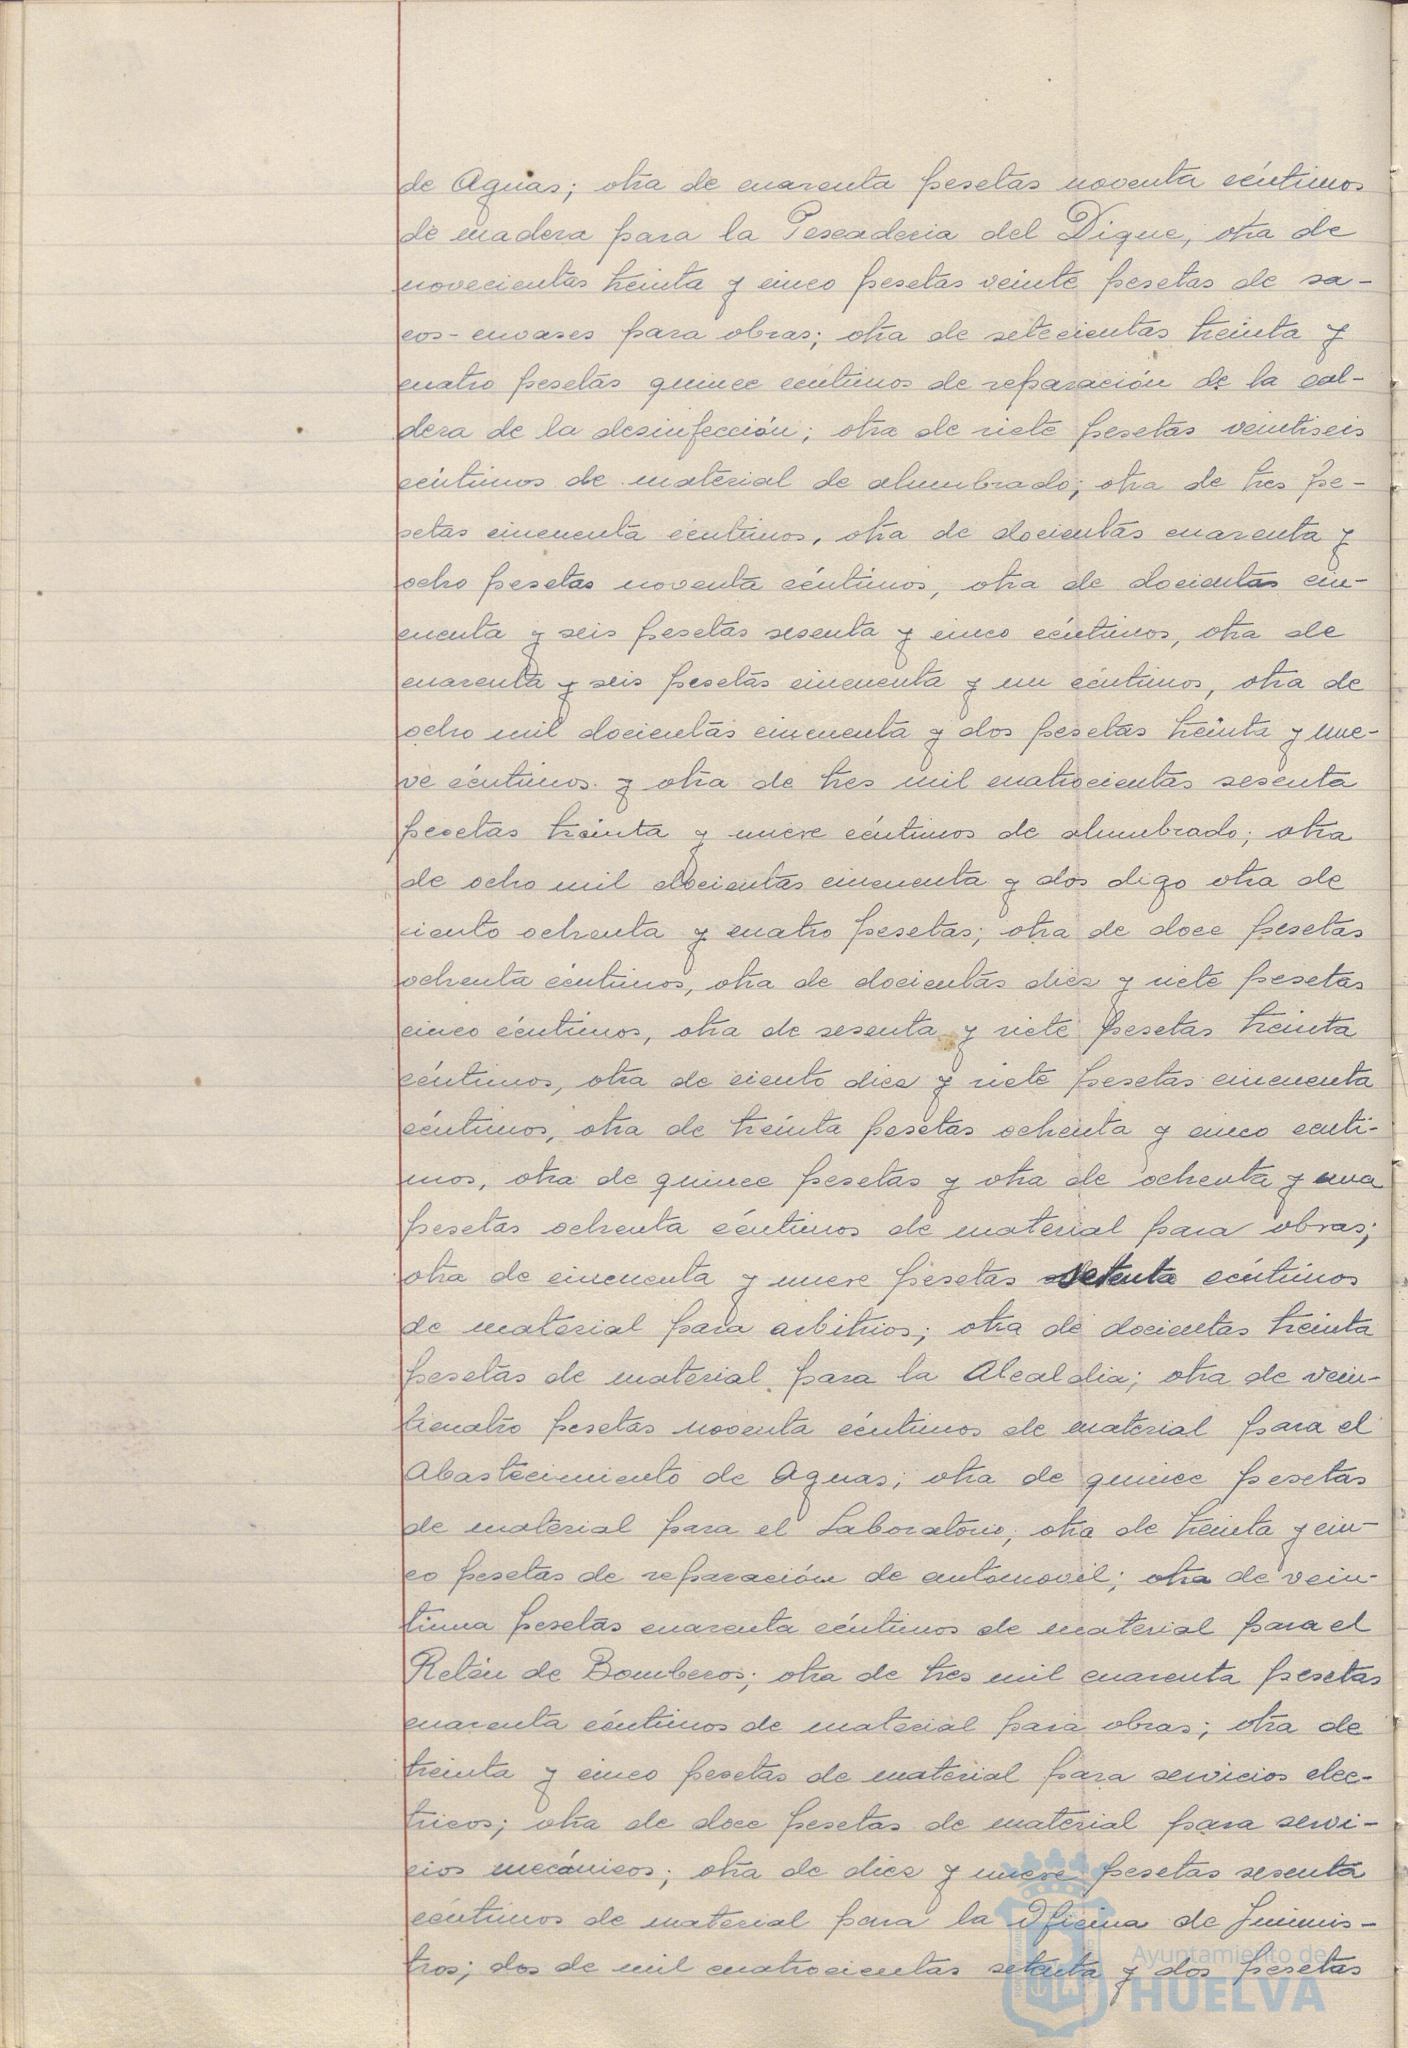 de Aguas; otra de cuarenta pesetas noventa céntimos
de madera para la Pescaderia del Dique, otra de
novecientas treinta y cinco pesetas veinte pesetas de sa-
cos-envases para obras; otra de setecientas treinta y
cuatro pesetas quince céntimos de reparación de la cal-
dera de la desinfección; otra de siete pesetas veintiseis
céntimos de material de alumbrado; otra de tres pe-
setas cincuenta céntimos, otra de docientas cuarenta y
ocho pesetas noventa céntimos, otra de docientas cin-
cuenta y seis pesetas sesenta y cinco céntimos, otra de
cuarenta y seis pesetas cincuenta y un céntimos, otra de
ocho mil docientas cincuenta y dos pesetas treinta y nue-
ve céntimos y otra de tres mil cuatrocientas sesenta
pesetas treinta y nueve céntimos de alumbrado; otra
de ocho mil docientas cincuenta y dos digo otra de
ciento ochenta y cuatro pesetas; otra de doce pesetas
ochenta céntimos, otra de docientas diez y siete pesetas
cinco céntimos, otra de sesenta y siete pesetas treinta
céntimos, otra de ciento diez y siete pesetas cincuenta
céntimos, otra de treinta pesetas ochenta y cinco cénti-
mos, otra de quince pesetas y otra de ochenta y una
pesetas ochenta céntimos de material para obras;
otra de cincuenta y nueve pesetas setenta céntimos
de material para arbitrios; otra de docientas treinta
pesetas de material para la Alcaldia; otra de vein-
ticuatro pesetas noventa céntimos de material para el
Abastecimiento de Aguas; otra de quince pesetas
de material para el Laboratorio; otra de treinta y cin-
co pesetas de reparación de automovil; otra de vein-
tiuna pesetas cuarenta céntimos de material para el
Retén de Bomberos; otra de tres mil cuarenta pesetas
cuarenta céntimos de material para obras; otra de
treinta y cinco pesetas de material para servicios elec-
tricos; otra de doce pesetas de material para servi-
cios mecánicos; otra de diez y nueve pesetas sesenta
céntimos de material para la Oficina de Suminis-
tros; dos de mil cuatrocientas setenta y dos pesetas
Ayuntamiento de
HUELVA